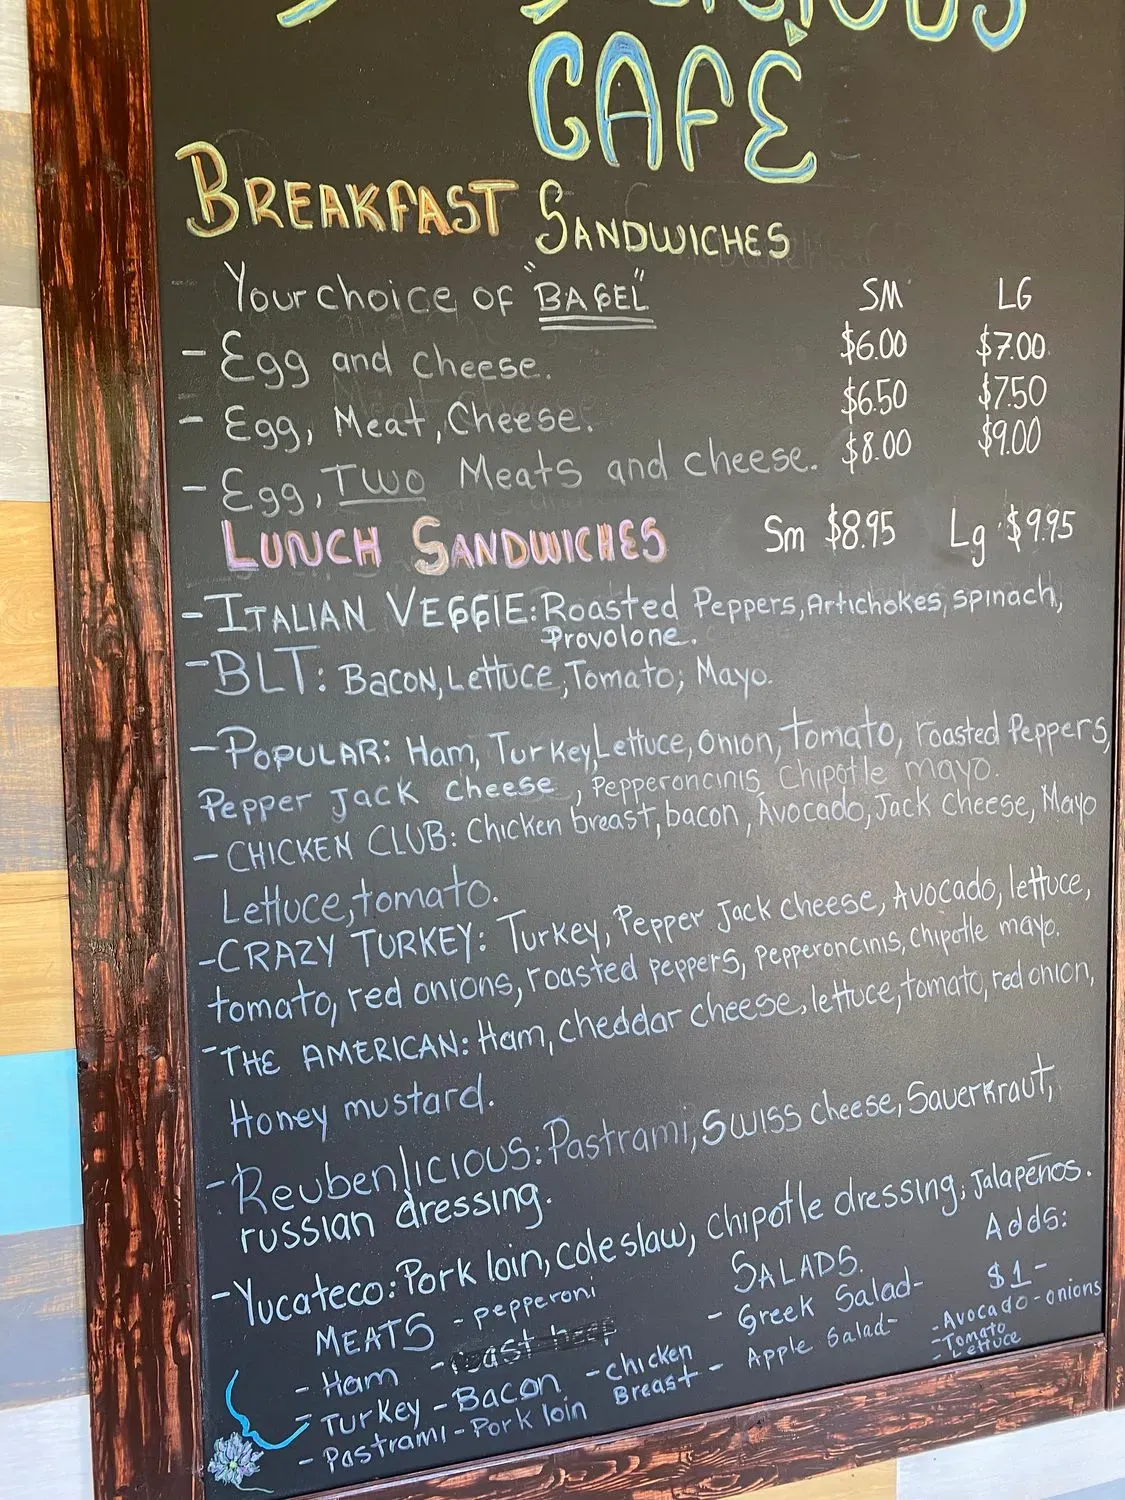 CAFÉ
BREAKFAST SANDWICHES
Your choice of "BAGEL" SM LG
- Egg and cheese. $6.00 $7.00
- Egg, Meat, Cheese. $6.50 $7.50
- Egg, TWO Meats and cheese. $8.00 $9.00
LUNCH SANDWICHES Sm $8.95 Lg $9.95
- ITALIAN VEGGIE: Roasted Peppers, Artichokes, spinach,
Provolone.
- BLT: Bacon, Lettuce, Tomato, Mayo.
- POPULAR: Ham, Turkey, Lettuce, Onion, tomato, roasted Peppers,
Pepper Jack cheese, Pepperoncinis, Chipotle mayo.
- CHICKEN CLUB: Chicken breast, bacon, Avocado, Jack Cheese, Mayo
Lettuce, tomato.
- CRAZY TURKEY: Turkey, Pepper Jack cheese, Avocado, lettuce,
tomato, red onions, roasted peppers, pepperoncinis, chipotle mayo.
- THE AMERICAN: Ham, cheddar cheese, lettuce, tomato, red onion,
Honey mustard.
- Reubenlicious: Pastrami, Swiss cheese, Sauerkraut,
russian dressing.
- Yucateco: Pork loin, coleslaw, chipotle dressing, Jalapeños.
MEATS - pepperoni
- Ham - roast beef
- Turkey - Bacon - chicken Breast
- Pastrami - Pork loin
SALADS.
- Greek Salad-
- Apple Salad-
Adds:
$1-
- Avocado - onions
- Tomato
- Lettuce